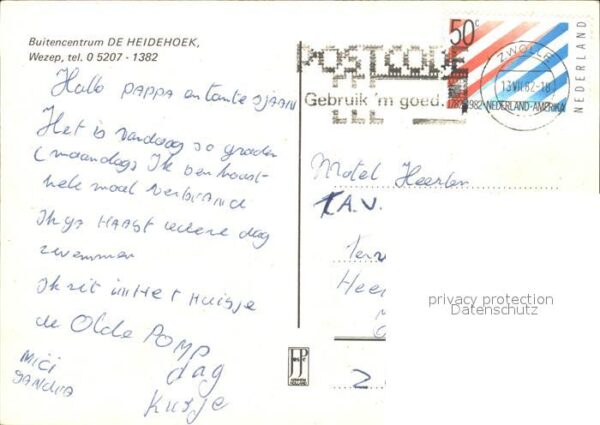 Buitencentrum DE HEIDEHOEK,
Wezep, tel. 0 5207 - 1382
Hallo PAPPA en tante SJAAN
Het is vandaag 30 graden
(maandag) Ik ben haast
hele maal verbrand
Ik ga HAAST iedere dag
zwemmen
Ik zit in Het Huisje
de Olde POMP
dag
Kusje
MICI
SANDRA
50c
NEDERLAND
1782-1982 NEDERLAND-AMERIKA
POSTCODE
Gebruik 'm goed.
ZWOLLE
13 VII 82
Motel Heerlen
T.A.V.
Terw
Heer
privacy protection
Datenschutz